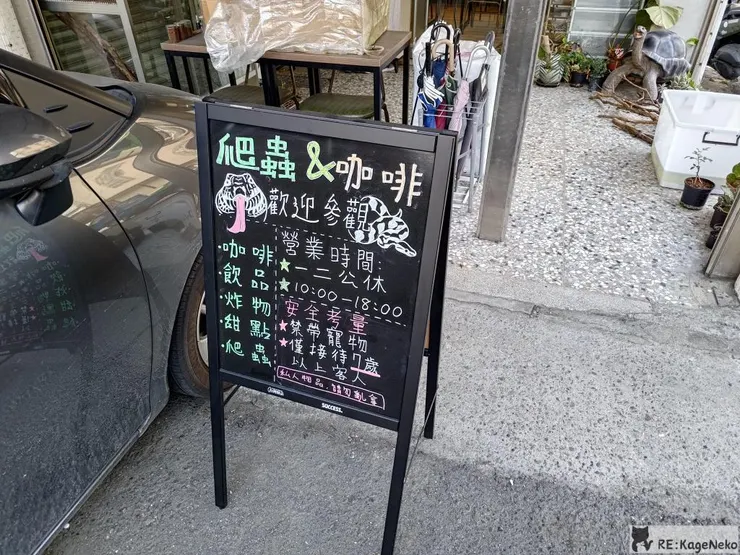 爬蟲&咖啡
歡迎參觀
·咖啡
·飲品
·炸物
·甜點
·爬蟲
營業時間:
★一二公休
★10:00-18:00
安全考量
★禁帶寵物
★僅接待7歲
以上客人
私人物品,請勿亂拿
SUCCESS.
RE:KageNeko